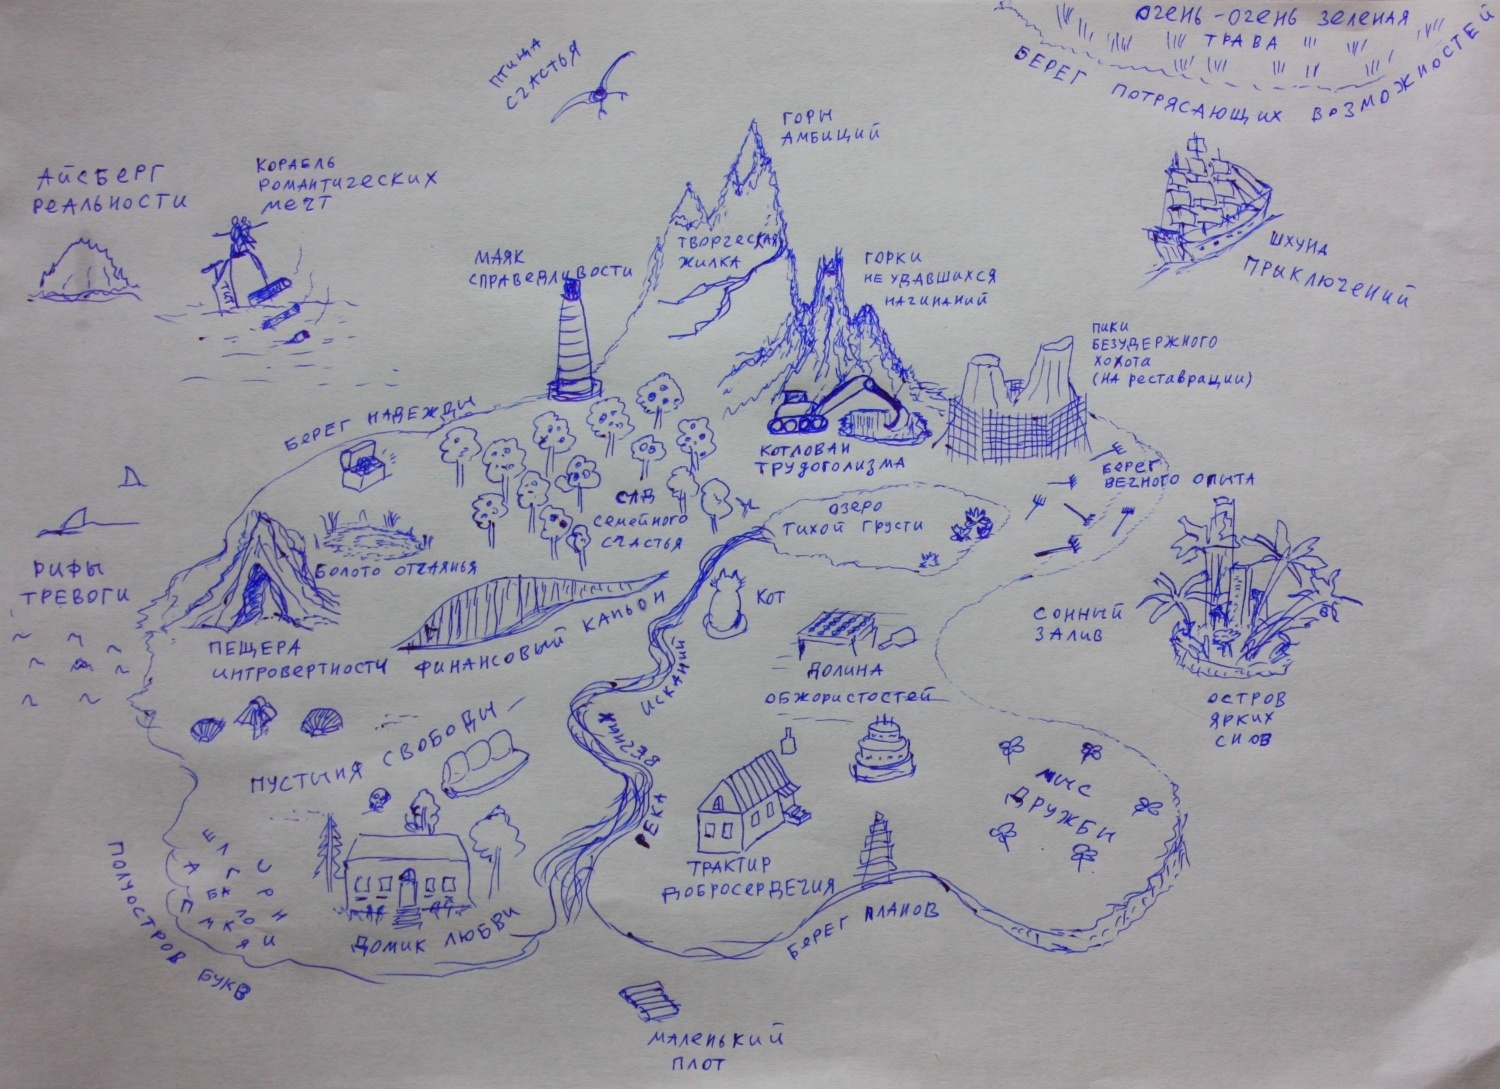 ОЧЕНЬ-ОЧЕНЬ ЗЕЛЕНАЯ
ТРАВА
БЕРЕГ ПОТРЯСАЮЩИХ ВОЗМОЖНОСТЕЙ
ПТИЦА
СЧАСТЬЯ
ГОРЫ
АМБИЦИЙ
АЙСБЕРГ
РЕАЛЬНОСТИ
КОРАБЛЬ
РОМАНТИЧЕСКИХ
МЕЧТ
ШХУНА
ПРИКЛЮЧЕНИЙ
ТВОРЧЕСКАЯ
ЖИЛКА
МАЯК
СПРАВЕДЛИВОСТИ
ГОРКИ
НЕУДАВШИХСЯ
НАЧИНАНИЙ
ПИКИ
БЕЗУДЕРЖНОГО
ХОХОТА
(НА РЕСТАВРАЦИИ)
БЕРЕГ НАДЕЖДЫ
КОТЛОВАН
ТРУДОГОЛИЗМА
БЕРЕГ
ВЕЧНОГО ОПЫТА
САД
СЕМЕЙНОГО
СЧАСТЬЯ
ОЗЕРО
ТИХОЙ ГРУСТИ
РИФЫ
ТРЕВОГИ
БОЛОТО ОТЧАЯНЬЯ
КОТ
СОННЫЙ
ЗАЛИВ
ПЕЩЕРА
ИНТРОВЕРТНОСТИ
ФИНАНСОВЫЙ КАНЬОН
ДОЛИНА
ОБЖОРИСТОСТЕЙ
ОСТРОВ
ЯРКИХ
СНОВ
РЕКА ВЕЧНЫХ ИСКАНИЙ
ПУСТЫНЯ СВОБОДЫ
МЫС
ДРУЖБЫ
ТРАКТИР
ДОБРОСЕРДЕЧИЯ
ПОЛУОСТРОВ БУКВ
ДОМИК ЛЮБВИ
БЕРЕГ ПЛАНОВ
МАЛЕНЬКИЙ
ПЛОТ